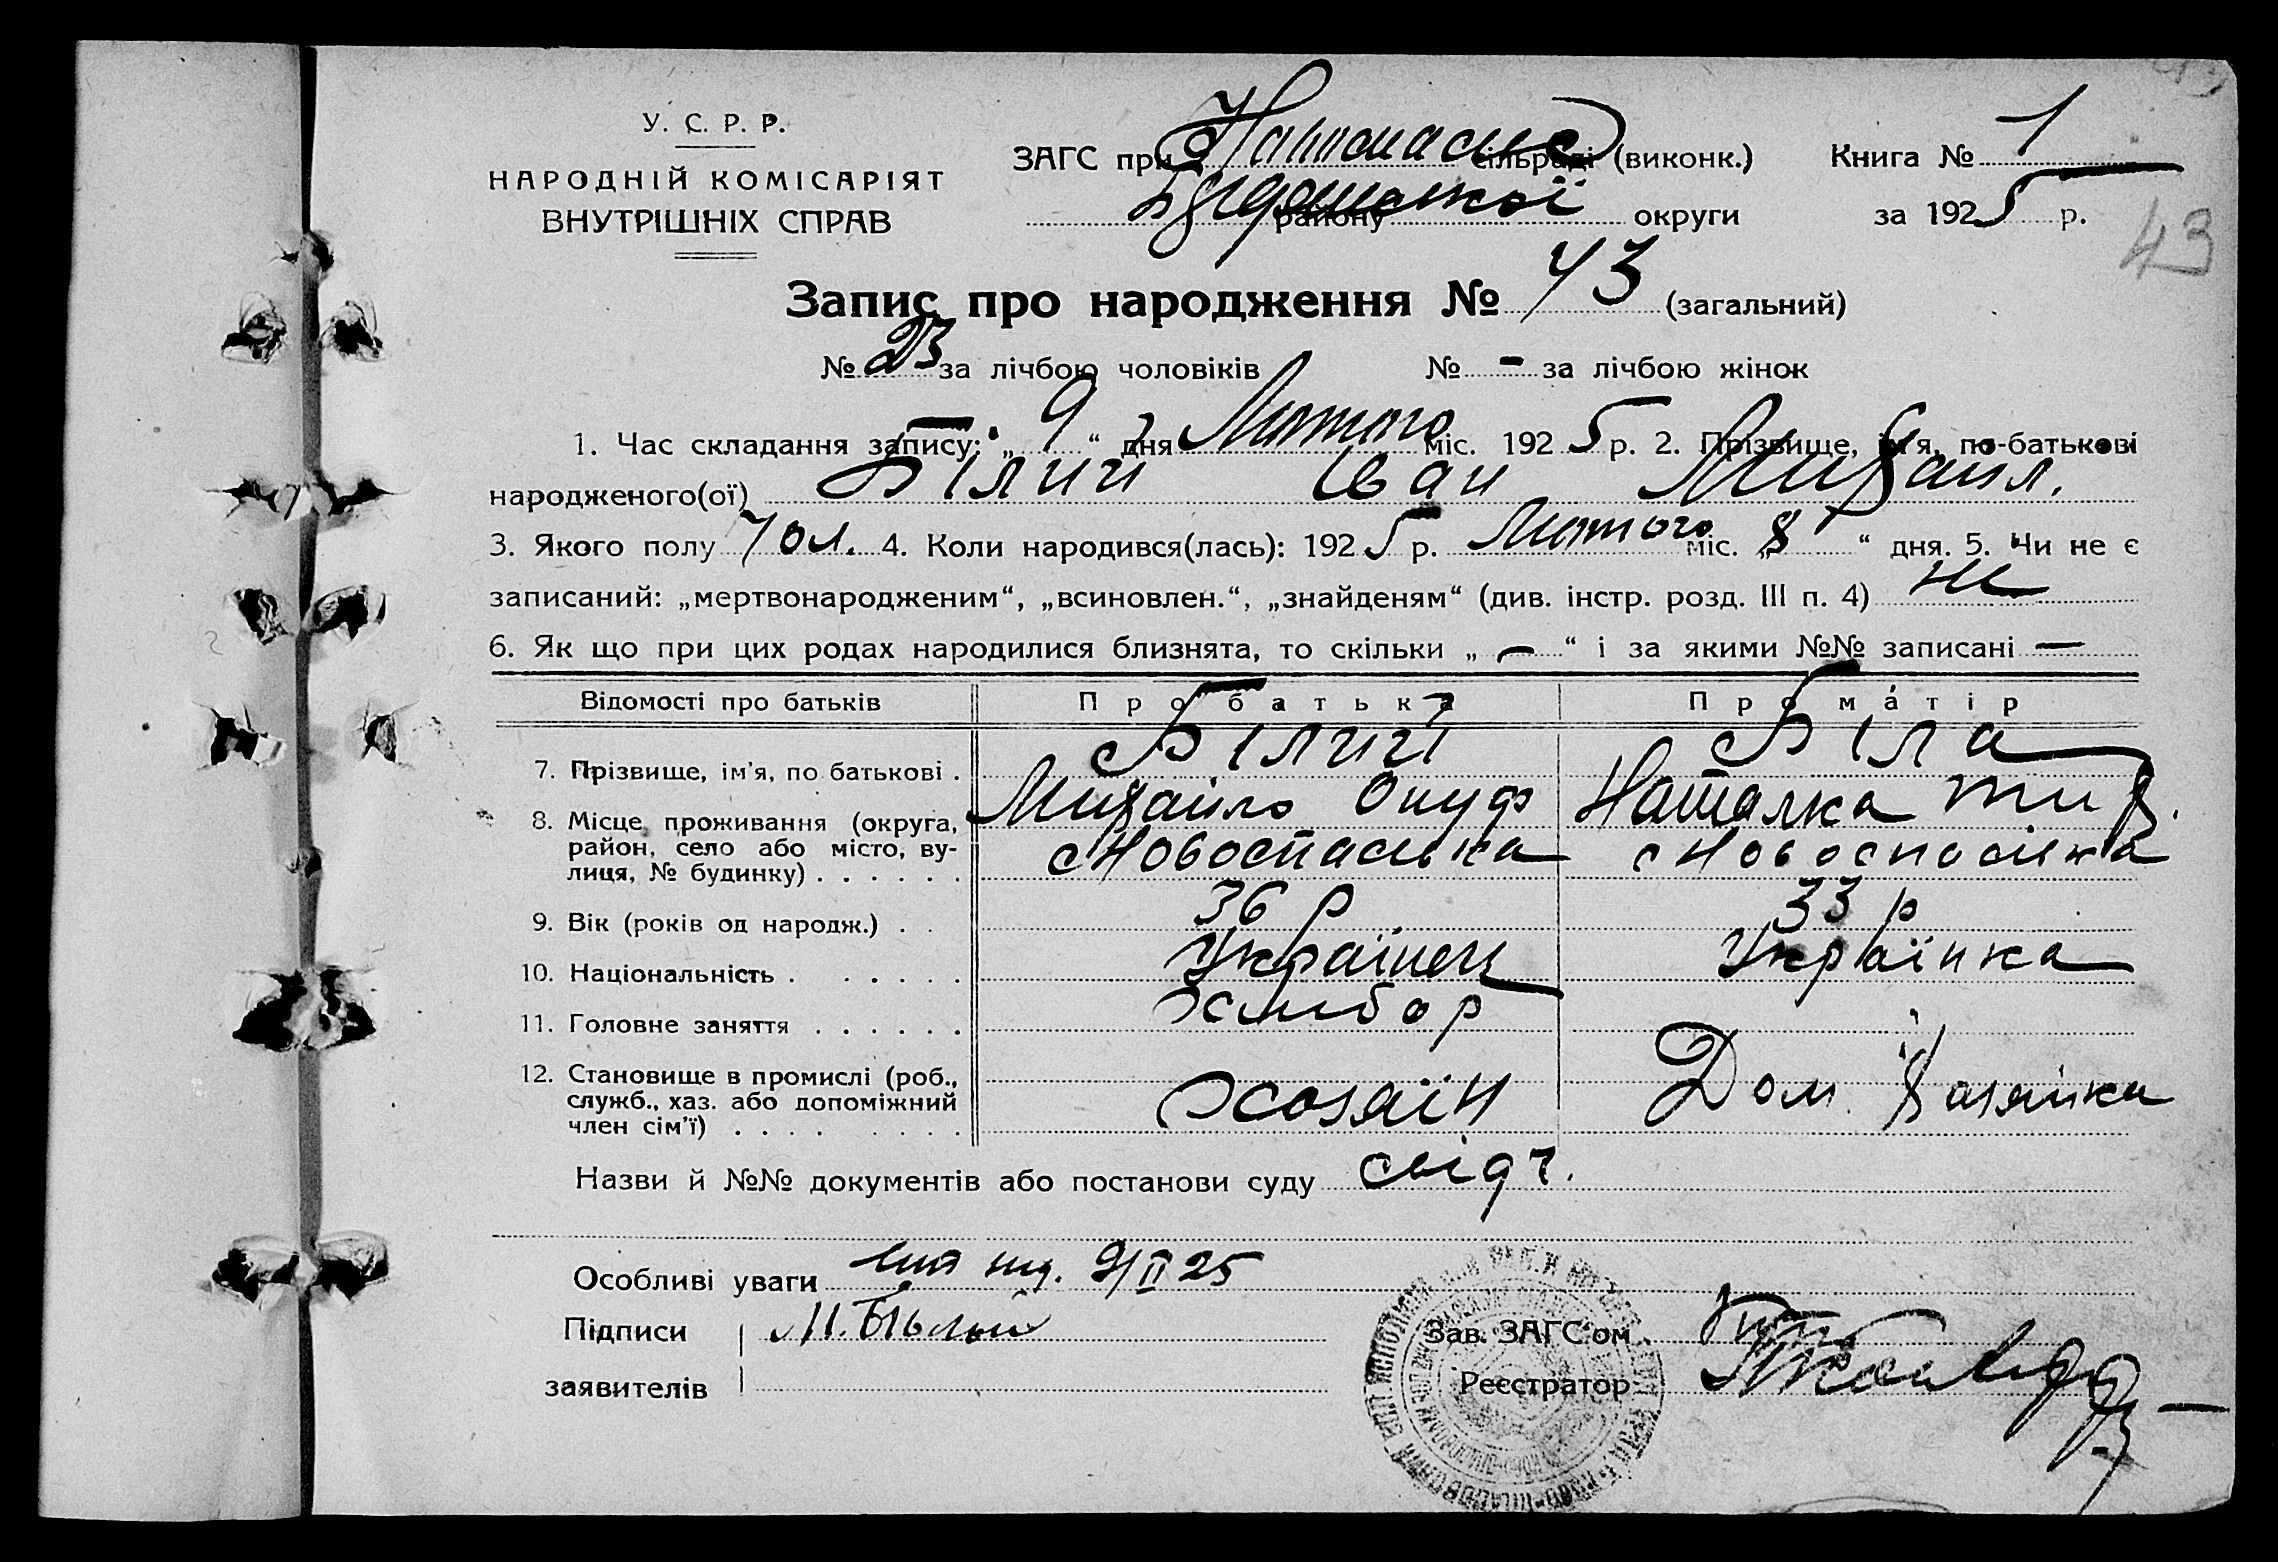 У. С. Р. Р.
НАРОДНІЙ КОМІСАРІЯТ
ВНУТРІШНІХ СПРАВ
ЗАГС при сільраді (виконк.) Книга № 1
району округи за 1925 р.
43
Запис про народження № 43 (загальний)
№ 23 за лічбою чоловіків № - за лічбою жінок
1. Час складання запису: „9“ дня Лютого міс. 1925 р. 2. Прізвище, ім'я, по-батькові
народженого(ої) Білий Іван Михайл.
3. Якого полу чол. 4. Коли народився(лась): 1925 р. Лютого міс. „8“ дня. 5. Чи не є
записаний: „мертвонародженим“, „всиновлен.“, „знайденям“ (див. інстр. розд. III п. 4) ні
6. Як що при цих родах народилися близнята, то скільки „—“ і за якими №№ записані —
Відомості про батьків Про батька Про ма́тір
7. Прізвище, ім'я, по батькові . Білий Біла
Михайло Онуф Наталка Тих.
8. Місце проживання (округа, район, село або місто, вулиця, № будинку) . . . . . . с Новоспаська с Новоспаська
9. Вік (років од народж.) . . 36 р 33 р
10. Національність . . . . . . Українец Українка
11. Головне заняття . . . . . . Хлибор
12. Становище в промислі (роб., служб., хаз. або допоміжний член сім'ї) . . . . . . . . Хозяїн Дом. Хазяйка
Назви й №№ документів або постанови суду свідч.
Особливі уваги 9/II 25
Підписи М. Бѣлый Зав. ЗАГС'ом
заявителів Реєстратор